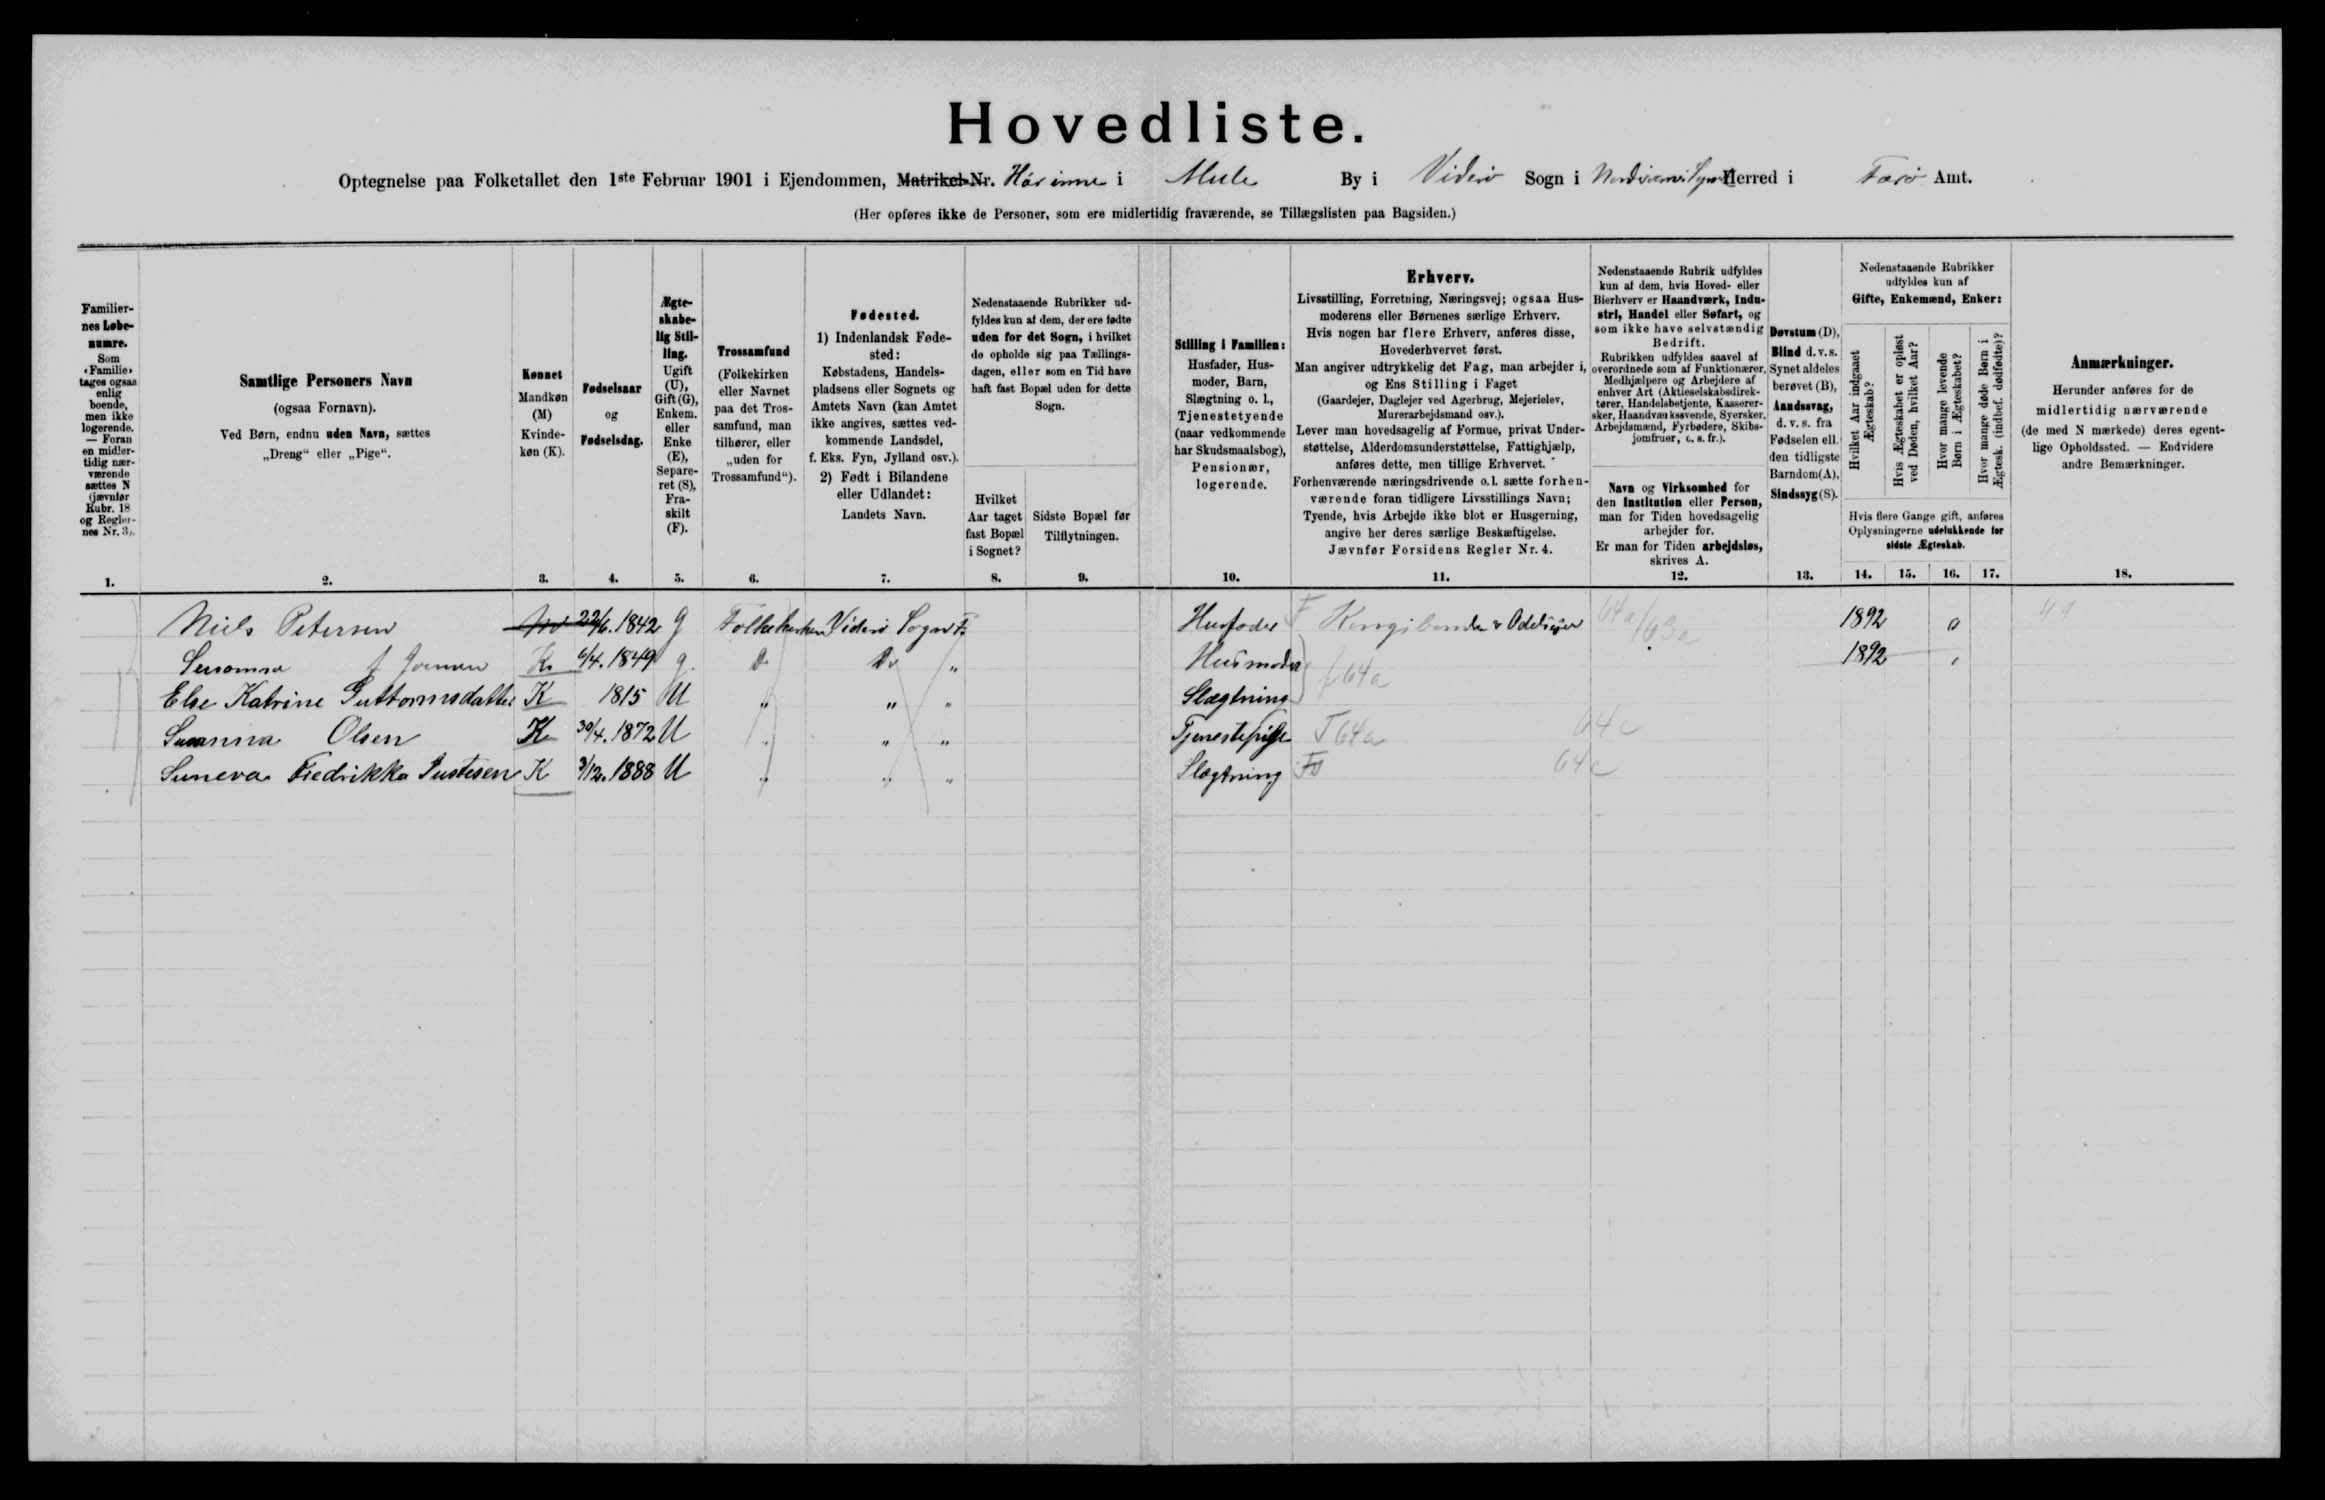 Hovedliste.
Optegnelse paa Folketallet den 1ste Februar 1901 i Ejendommen, Matrikel-Nr. Hár inne i Mule By i Viderø Sogn i Herred i Færø Amt.
(Her opføres ikke de Personer, som ere midlertidig fraværende, se Tillægslisten paa Bagsiden.)
Familier-
nes Løbe-
numre.
Som
«Familie»
tages ogsaa
enlig
boende,
men ikke
logerende.
— Foran
en midler-
tidig nær-
værende
sættes N
(jævnfør
Rubr. 18
og Regler-
nes Nr. 3).
1.
Samtlige Personers Navn
(ogsaa Fornavn).
Ved Børn, endnu uden Navn, sættes
„Dreng“ eller „Pige“.
2.
Kønnet
Mandkøn
(M)
Kvinde-
køn (K).
3.
Fødselsaar
og
Fødselsdag.
4.
Ægte-
skabe-
lig Stil-
ling.
Ugift
(U),
Gift (G),
Enkem.
eller
Enke
(E),
Separe-
ret (S),
Fra-
skilt
(F).
5.
Trossamfund
(Folkekirken
eller Navnet
paa det Tros-
samfund, man
tilhører, eller
„uden for
Trossamfund“).
6.
Fødested.
1) Indenlandsk Føde-
sted:
Købstadens, Handels-
pladsens eller Sognets og
Amtets Navn (kan Amtet
ikke angives, sættes ved-
kommende Landsdel,
f. Eks. Fyn, Jylland osv.).
2) Født i Bilandene
eller Udlandet:
Landets Navn.
7.
Nedenstaaende Rubrikker ud-
fyldes kun af dem, der ere fødte
uden for det Sogn, i hvilket
de opholde sig paa Tællings-
dagen, eller som en Tid have
haft fast Bopæl uden for dette
Sogn.
Hvilket
Aar taget
fast Bopæl
i Sognet?
8.
Sidste Bopæl før
Tilflytningen.
9.
Stilling i Familien:
Husfader, Hus-
moder, Barn,
Slægtning o. l.,
Tjenestetyende
(naar vedkommende
har Skudsmaalsbog),
Pensionær,
logerende.
10.
Erhverv.
Livsstilling, Forretning, Næringsvej; ogsaa Hus-
moderens eller Børnenes særlige Erhverv.
Hvis nogen har flere Erhverv, anføres disse,
Hovederhvervet først.
Man angiver udtrykkelig det Fag, man arbejder i,
og Ens Stilling i Faget
(Gaardejer, Daglejer ved Agerbrug, Mejerielev,
Murerarbejdsmand osv.).
Lever man hovedsagelig af Formue, privat Under-
støttelse, Alderdomsunderstøttelse, Fattighjælp,
anføres dette, men tillige Erhvervet.
Forhenværende næringsdrivende o. l. sætte forhen-
værende foran tidligere Livsstillings Navn;
Tyende, hvis Arbejde ikke blot er Husgerning,
angive her deres særlige Beskæftigelse.
Jævnfør Forsidens Regler Nr. 4.
11.
Nedenstaaende Rubrik udfyldes
kun af dem, hvis Hoved- eller
Bierhverv er Haandværk, Indu-
stri, Handel eller Søfart, og
som ikke have selvstændig
Bedrift.
Rubrikken udfyldes saavel af
overordnede som af Funktionærer,
Medhjælpere og Arbejdere af
enhver Art (Aktieselskabsdirek-
tører, Handelsbetjente, Kasserer-
sker, Haandværkssvende, Syersker,
Arbejdsmænd, Fyrbødere, Skibs-
jomfruer, o. s. fr.).
Navn og Virksomhed for
den Institution eller Person,
man for Tiden hovedsagelig
arbejder for.
Er man for Tiden arbejdsløs,
skrives A.
12.
Døvstum (D),
Blind d. v. s.
Synet aldeles
berøvet (B),
Aandssvag,
d. v. s. fra
Fødselen ell.
den tidligste
Barndom (A),
Sindssyg (S).
13.
Nedenstaaende Rubrikker
udfyldes kun af
Gifte, Enkemænd, Enker:
Hvilket Aar indgaaet
Ægteskab?
Hvis Ægteskabet er opløst
ved Døden, hvilket Aar?
Hvor mange levende
Børn i Ægteskabet?
Hvor mange døde Børn i
Ægtesk. (indbef. dødfødte)?
Hvis flere Gange gift, anføres
Oplysningerne udelukkende for
sidste Ægteskab.
14. 15. 16. 17.
Anmærkninger.
Herunder anføres for de
midlertidig nærværende
(de med N mærkede) deres egent-
lige Opholdssted. — Endvidere
andre Bemærkninger.
18.
Niels Petersen M 22/6. 1842 G Folkekirken Viderø Sogn F. Husfader F Kongsbonde & Odelsejer 64a/63a 1892 0
f Joensen K 6/4. 1849 g. Do Do „ Husmoder f 64a 1892 „
Else Katrine Guttormsdatter K 1815 U „ „ „ Slægtning
Susanna Olsen K 30/4. 1872 U „ „ „ Tjenestepige T 64a 64c
Suneva Fredrikka Justesen K 3/12. 1888 U „ „ „ Slægtning 64c